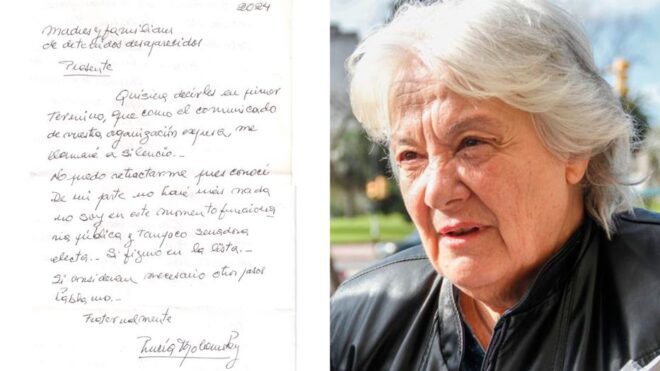 2024
Madres y familiares
de detenidos desaparecidos
Presente
Quisiera decirles en primer
termino, que como el comunicado
de nuestra organización expresa, me
llamaré a silencio.-
No puedo retractarme pues conocí
De mi parte no haré más nada
no soy en este momento funciona
ria pública y tampoco senadora
electa.- Si figuro en la lista.-
Si consideran necesario otros pasos
háblenme.-
Fraternalmente
Lucía Topolansky